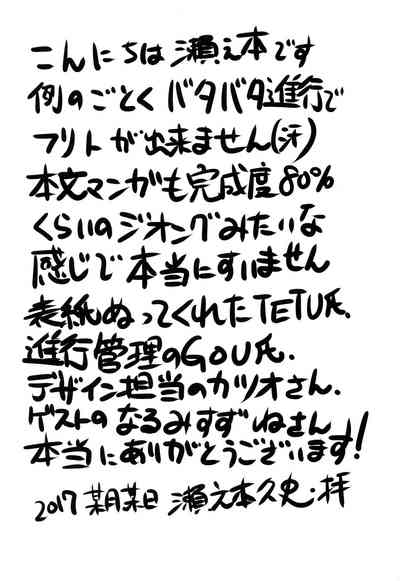 こんにちは 瀬之本です
例のごとくバタバタ進行で
フリトが出来ません(汗)
本文マンガも完成度80%
くらいのジオングみたいな
感じで本当にすいません
表紙ぬってくれたTETU氏.
進行管理のGOU氏.
デザイン担当のカツオさん.
ゲストのなるみすずねさん
本当にありがとうございます!
2017 某月某日 瀬之本久史・拝